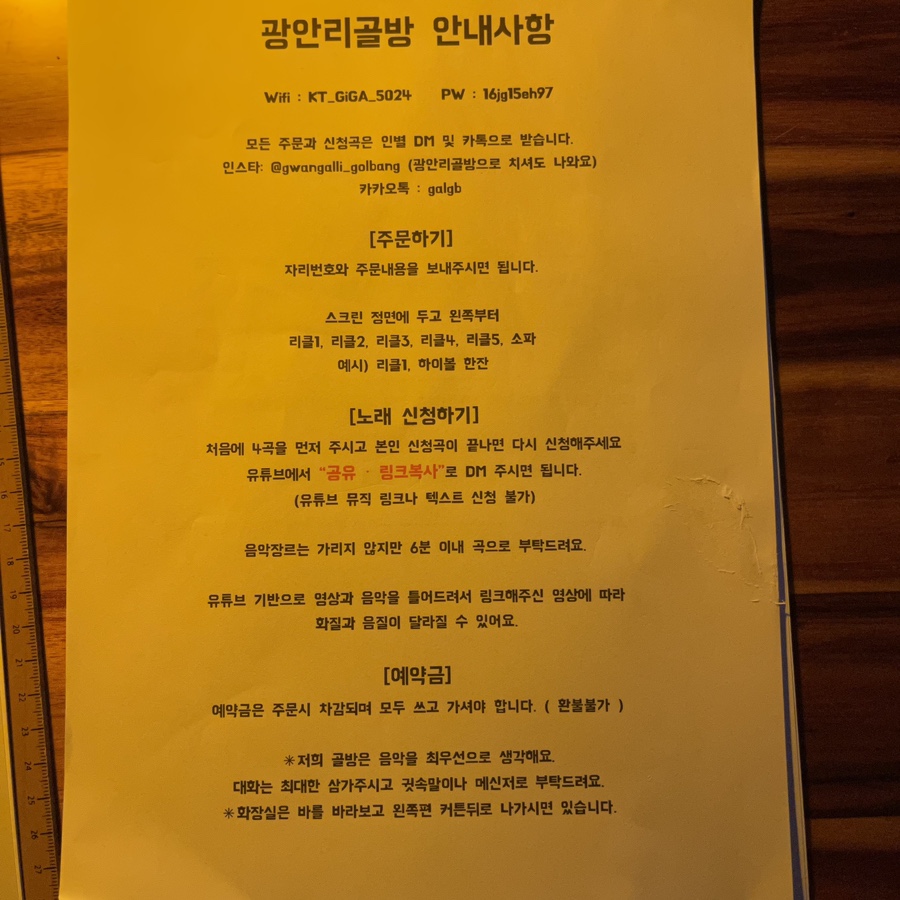 광안리골방 안내사항
Wifi : KT_GiGA_5024 PW : 16jg15eh97
모든 주문과 신청곡은 인별 DM 및 카톡으로 받습니다.
인스타: @gwangalli_golbang (광안리골방으로 치셔도 나와요)
카카오톡 : galgb
[주문하기]
자리번호와 주문내용을 보내주시면 됩니다.
스크린 정면에 두고 왼쪽부터
리클1, 리클2, 리클3, 리클4, 리클5, 소파
예시) 리클1, 하이볼 한잔
[노래 신청하기]
처음에 4곡을 먼저 주시고 본인 신청곡이 끝나면 다시 신청해주세요
유튜브에서 “공유 - 링크복사”로 DM 주시면 됩니다.
(유튜브 뮤직 링크나 텍스트 신청 불가)
음악장르는 가리지 않지만 6분 이내 곡으로 부탁드려요.
유튜브 기반으로 영상과 음악을 틀어드려서 링크해주신 영상에 따라
화질과 음질이 달라질 수 있어요.
[예약금]
예약금은 주문시 차감되며 모두 쓰고 가셔야 합니다. ( 환불불가 )
✳저희 골방은 음악을 최우선으로 생각해요.
대화는 최대한 삼가주시고 귓속말이나 메신저로 부탁드려요.
✳화장실은 바를 바라보고 왼쪽편 커튼뒤로 나가시면 있습니다.
15
16
17
18
19
20
21
22
23
24
25
26
27